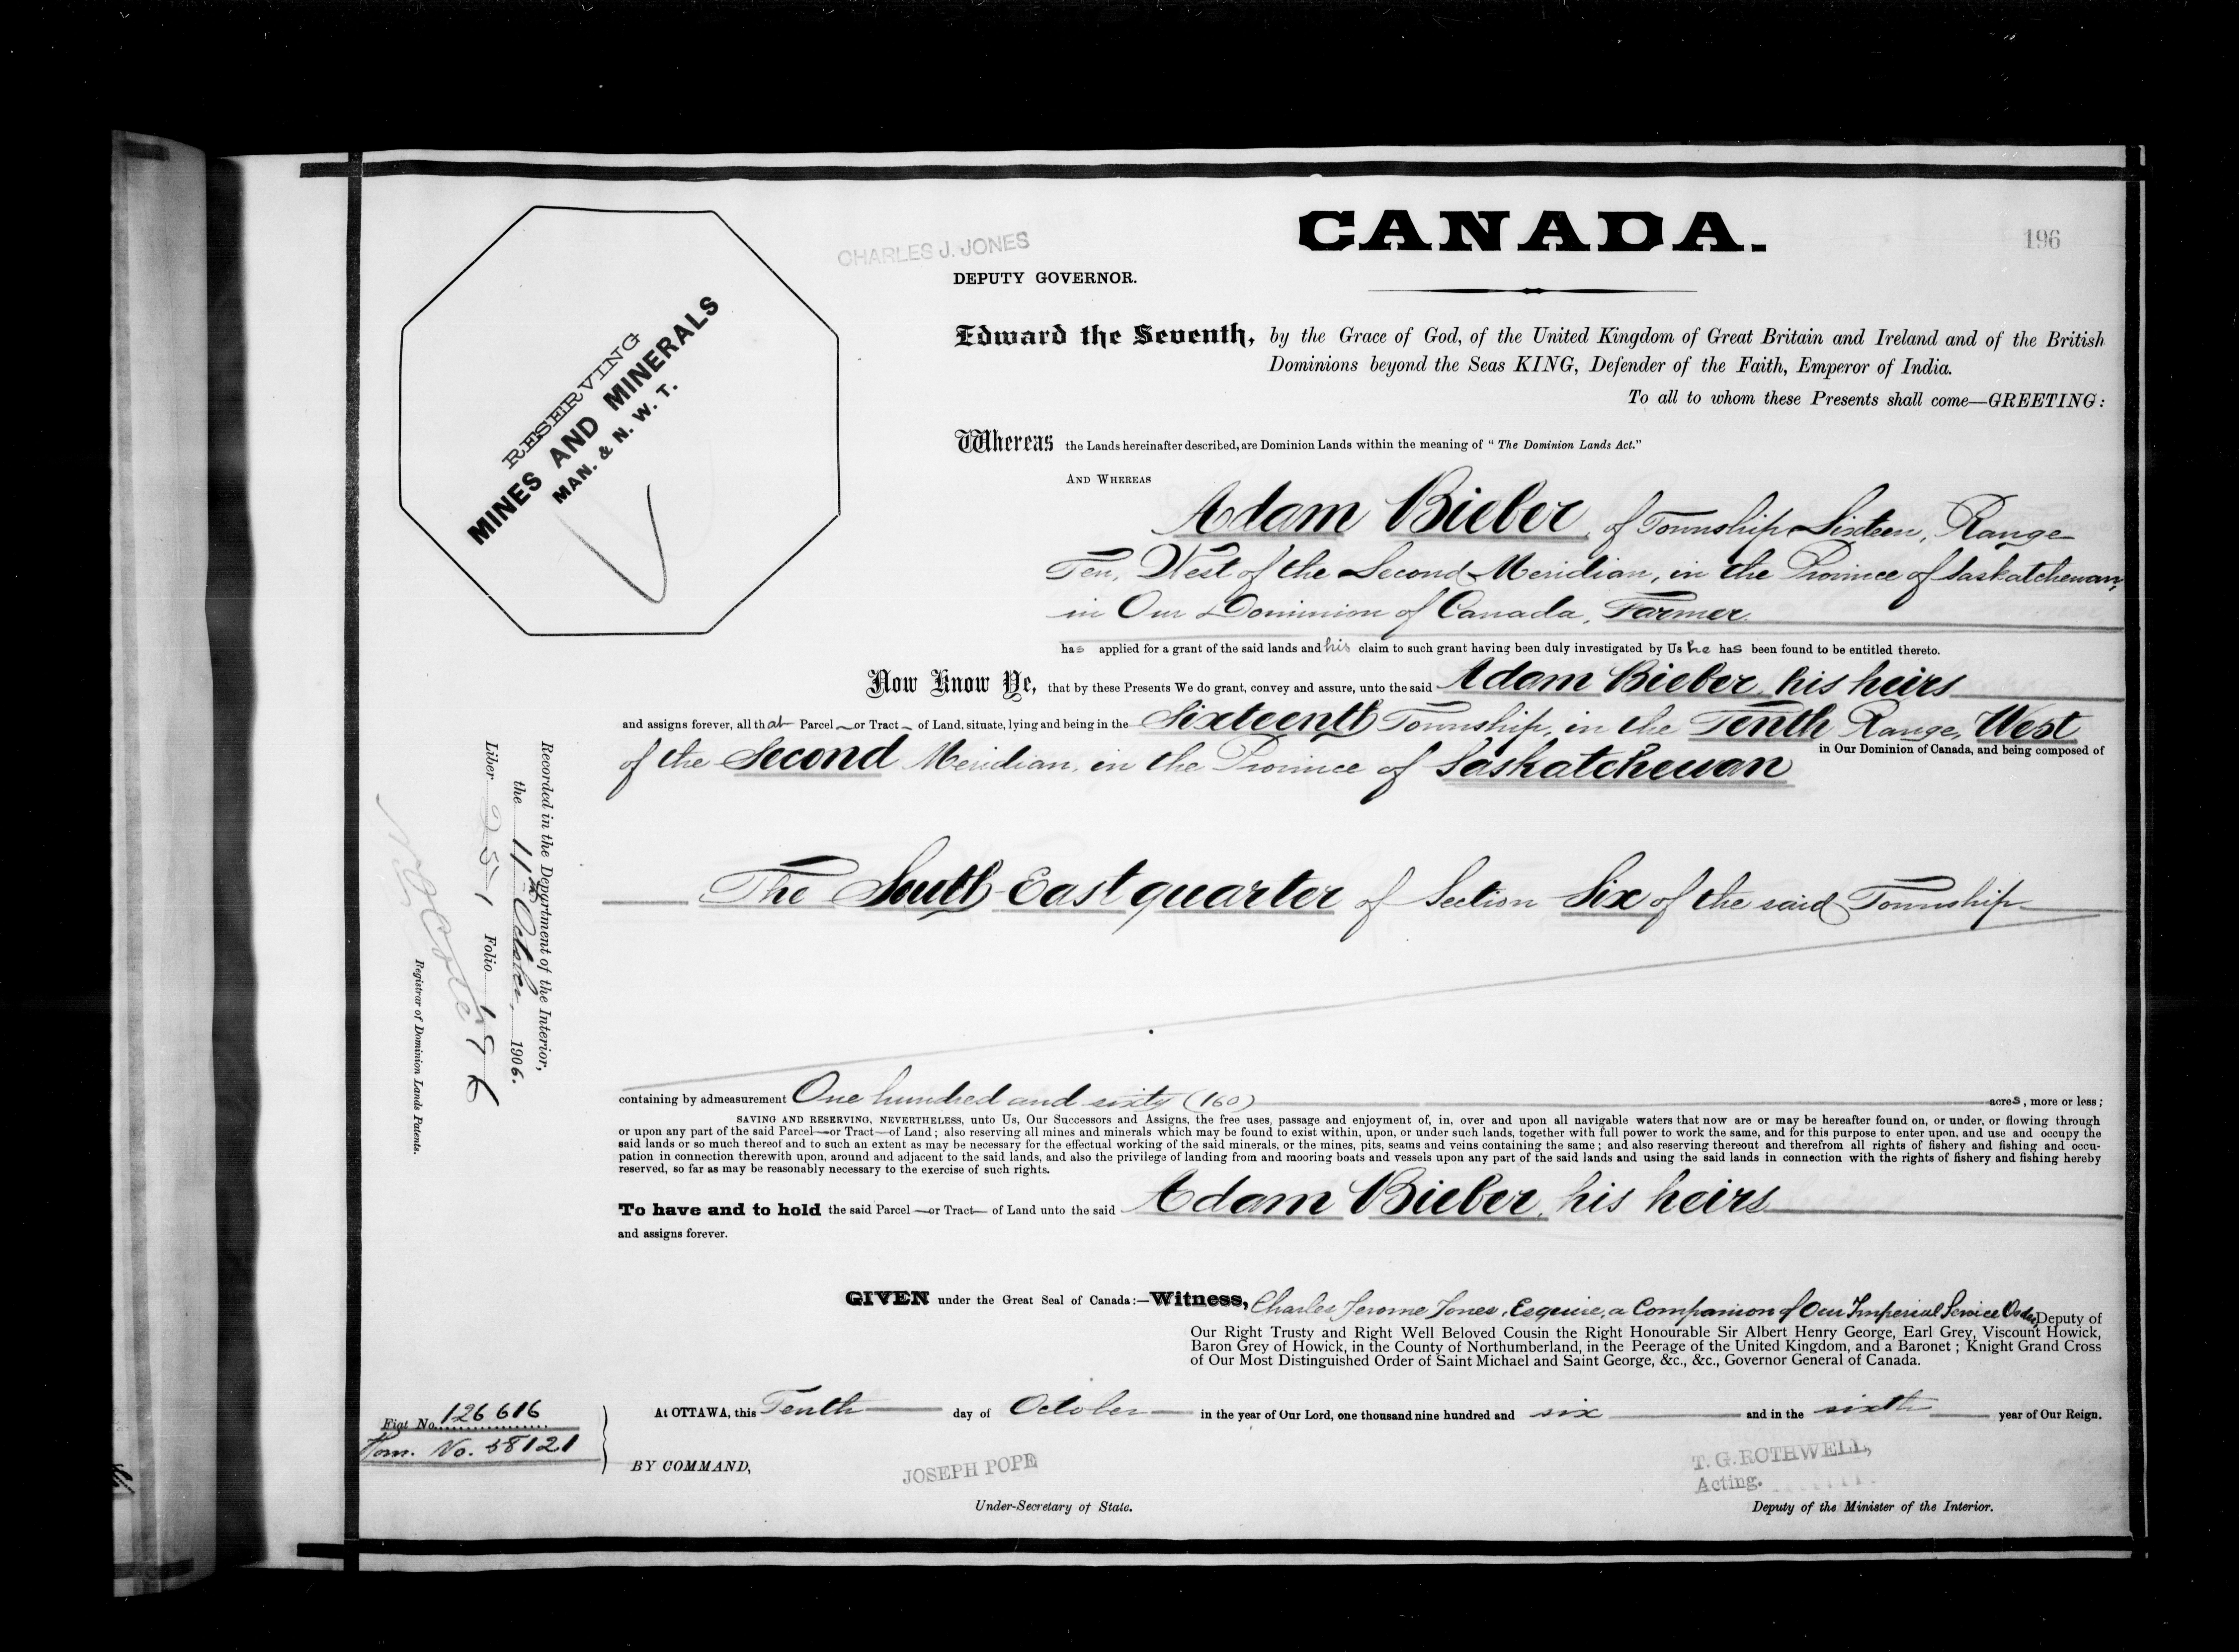 CANADA.
196
CHARLES J. JONES
DEPUTY GOVERNOR.
RESERVING
MINES AND MINERALS
MAN. & N. W. T.
Edward the Seventh, by the Grace of God, of the United Kingdom of Great Britain and Ireland and of the British
Dominions beyond the Seas KING, Defender of the Faith, Emperor of India.
To all to whom these Presents shall come—GREETING:
Whereas the Lands hereinafter described, are Dominion Lands within the meaning of "The Dominion Lands Act."
AND WHEREAS
Adam Bieber, of Township Sixteen, Range
Ten, West of the Second Meridian, in the Province of Saskatchewan,
in Our Dominion of Canada, Farmer
has applied for a grant of the said lands and his claim to such grant having been duly investigated by Us he has been found to be entitled thereto.
Now Know Ye, that by these Presents We do grant, convey and assure, unto the said Adam Bieber, his heirs
and assigns forever, all that Parcel or Tract of Land, situate, lying and being in the Sixteenth Township, in the Tenth Range, West
of the Second Meridian, in the Province of Saskatchewan in Our Dominion of Canada, and being composed of
The South East quarter of Section Six of the said Township
containing by admeasurement One hundred and sixty (160) acres, more or less;
SAVING AND RESERVING, NEVERTHELESS, unto Us, Our Successors and Assigns, the free uses, passage and enjoyment of, in, over and upon all navigable waters that now are or may be hereafter found on, or under, or flowing through
or upon any part of the said Parcel—or Tract—of Land; also reserving all mines and minerals which may be found to exist within, upon, or under such lands, together with full power to work the same, and for this purpose to enter upon, and use and occupy the
said lands or so much thereof and to such an extent as may be necessary for the effectual working of the said minerals, or the mines, pits, seams and veins containing the same; and also reserving thereout and therefrom all rights of fishery and fishing and occu-
pation in connection therewith upon, around and adjacent to the said lands, and also the privilege of landing from and mooring boats and vessels upon any part of the said lands and using the said lands in connection with the rights of fishery and fishing hereby
reserved, so far as may be reasonably necessary to the exercise of such rights.
To have and to hold the said Parcel—or Tract—of Land unto the said Adam Bieber, his heirs
and assigns forever.
GIVEN under the Great Seal of Canada:—Witness, Charles Jerome Jones, Esquire, a Companion of Our Imperial Service Order, Deputy of
Our Right Trusty and Right Well Beloved Cousin the Right Honourable Sir Albert Henry George, Earl Grey, Viscount Howick,
Baron Grey of Howick, in the County of Northumberland, in the Peerage of the United Kingdom, and a Baronet; Knight Grand Cross
of Our Most Distinguished Order of Saint Michael and Saint George, &c., &c., Governor General of Canada.
At OTTAWA, this Tenth day of October in the year of Our Lord, one thousand nine hundred and six and in the sixth year of Our Reign.
BY COMMAND,
JOSEPH POPE
Under-Secretary of State.
T. G. ROTHWELL,
Acting.
Deputy of the Minister of the Interior.
Fiat No. 126616
Hom. No. 38121
Recorded in the Department of the Interior,
the 11th October, 1906.
Liber 251 Folio 196
Registrar of Dominion Lands Patents.